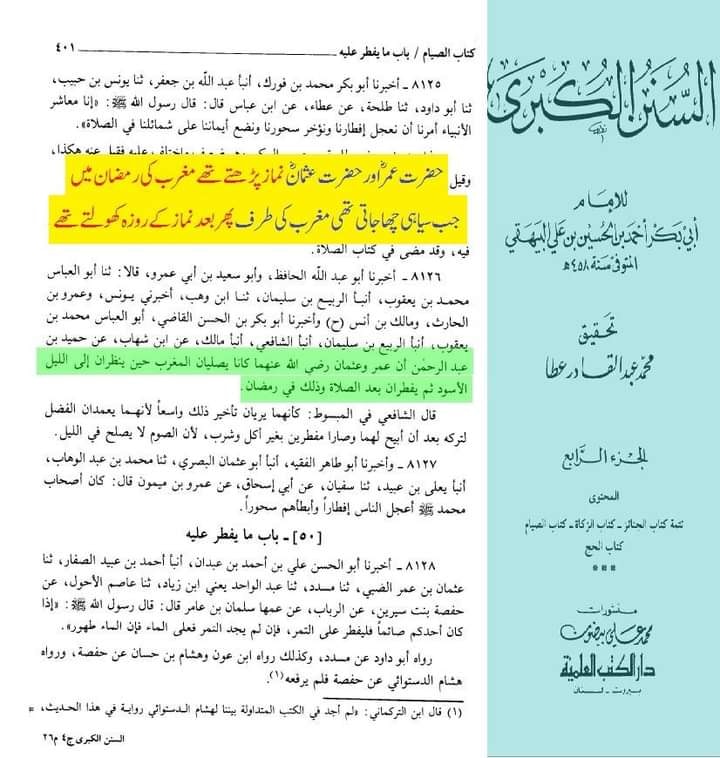 كتاب الصيام / باب ما يفطر عليه ٤٠١
٨١٢٥ - أخبرنا أبو بكر محمد بن فورك، أنبأ عبد الله بن جعفر، ثنا يونس بن حبيب،
ثنا أبو داود، ثنا طلحة، عن عطاء، عن ابن عباس قال: قال رسول الله ﷺ: «إنا معاشر
الأنبياء أمرنا أن نعجل إفطارنا ونؤخر سحورنا ونضع أيماننا على شمائلنا في الصلاة».
وقيل
حضرت عمرؓ اور حضرت عثمانؓ نماز پڑھتے تھے مغرب کی رمضان میں
جب سیاہی چھا جاتی تھی مغرب کی طرف پھر بعد نماز کے روزہ کھولتے تھے
فيه، وقد مضى في كتاب الصلاة.
٨١٢٦ - أخبرنا أبو عبد الله الحافظ، وأبو سعيد بن أبي عمرو، قالا: ثنا أبو العباس
محمد بن يعقوب، أنبأ الربيع بن سليمان، ثنا ابن وهب، أخبرني يونس، وعمرو بن
الحارث، ومالك بن أنس (ح) وأخبرنا أبو بكر بن الحسن القاضي، أبو العباس محمد بن
يعقوب، أنبأ الربيع بن سليمان، أنبأ الشافعي، أنبأ مالك، عن ابن شهاب، عن حميد بن
عبد الرحمٰن أن عمر وعثمان رضي الله عنهما كانا يصليان المغرب حين ينظران إلى الليل
الأسود ثم يفطران بعد الصلاة وذلك في رمضان.
قال الشافعي في المبسوط: كأنهما يريان تأخير ذلك واسعاً لأنهما يعمدان الفضل
لتركه بعد أن أبيح لهما وصارا مفطرين بغير أكل وشرب، لأن الصوم لا يصلح في الليل.
٨١٢٧ - وأخبرنا أبو طاهر الفقيه، أنبأ أبو عثمان البصري، ثنا محمد بن عبد الوهاب،
أنبأ يعلى بن عبيد، ثنا سفيان، عن أبي إسحاق، عن عمرو بن ميمون قال: كان أصحاب
محمد ﷺ أعجل الناس إفطاراً وأبطأهم سحوراً.
[٥٠] - باب ما يفطر عليه
٨١٢٨ - أخبرنا أبو الحسن علي بن أحمد بن عبدان، أنبأ أحمد بن عبيد الصفار، ثنا
عثمان بن عمر الضبي، ثنا مسدد، ثنا عبد الواحد يعني ابن زياد، ثنا عاصم الأحول، عن
حفصة بنت سيرين، عن الرباب، عن عمها سلمان بن عامر قال: قال رسول الله ﷺ: «إذا
كان أحدكم صائماً فليفطر على التمر، فإن لم يجد التمر فعلى الماء فإن الماء طهور».
رواه أبو داود عن مسدد، وكذلك رواه ابن عون وهشام بن حسان عن حفصة، ورواه
هشام الدستوائي عن حفصة فلم يرفعه(١).
(١) قال ابن التركماني: «لم أجد في الكتب المتداولة بيننا لهشام الدستوائي رواية في هذا الحديث، =
السنن الكبرى ج٤ م٢٦
السنن الكبرى
للإمام
أبي بكر أحمد بن الحسين بن علي البيهقي
المتوفى سنة ٤٥٨ هـ
تحقيق
محمد عبد القادر عطا
الجزء الرابع
المحتوى
تتمة كتاب الجنائز - كتاب الزكاة - كتاب الصيام
كتاب الحج
***
منشورات
محمد علي بيضون
دار الكتب العلمية
بيروت - لبنان